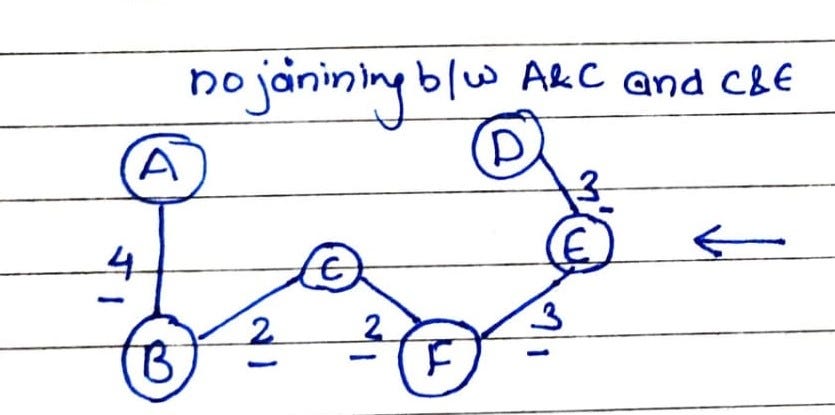 no joinining b/w A&C and C&E
A
D
3
E
4
C
B
2
2
F
3